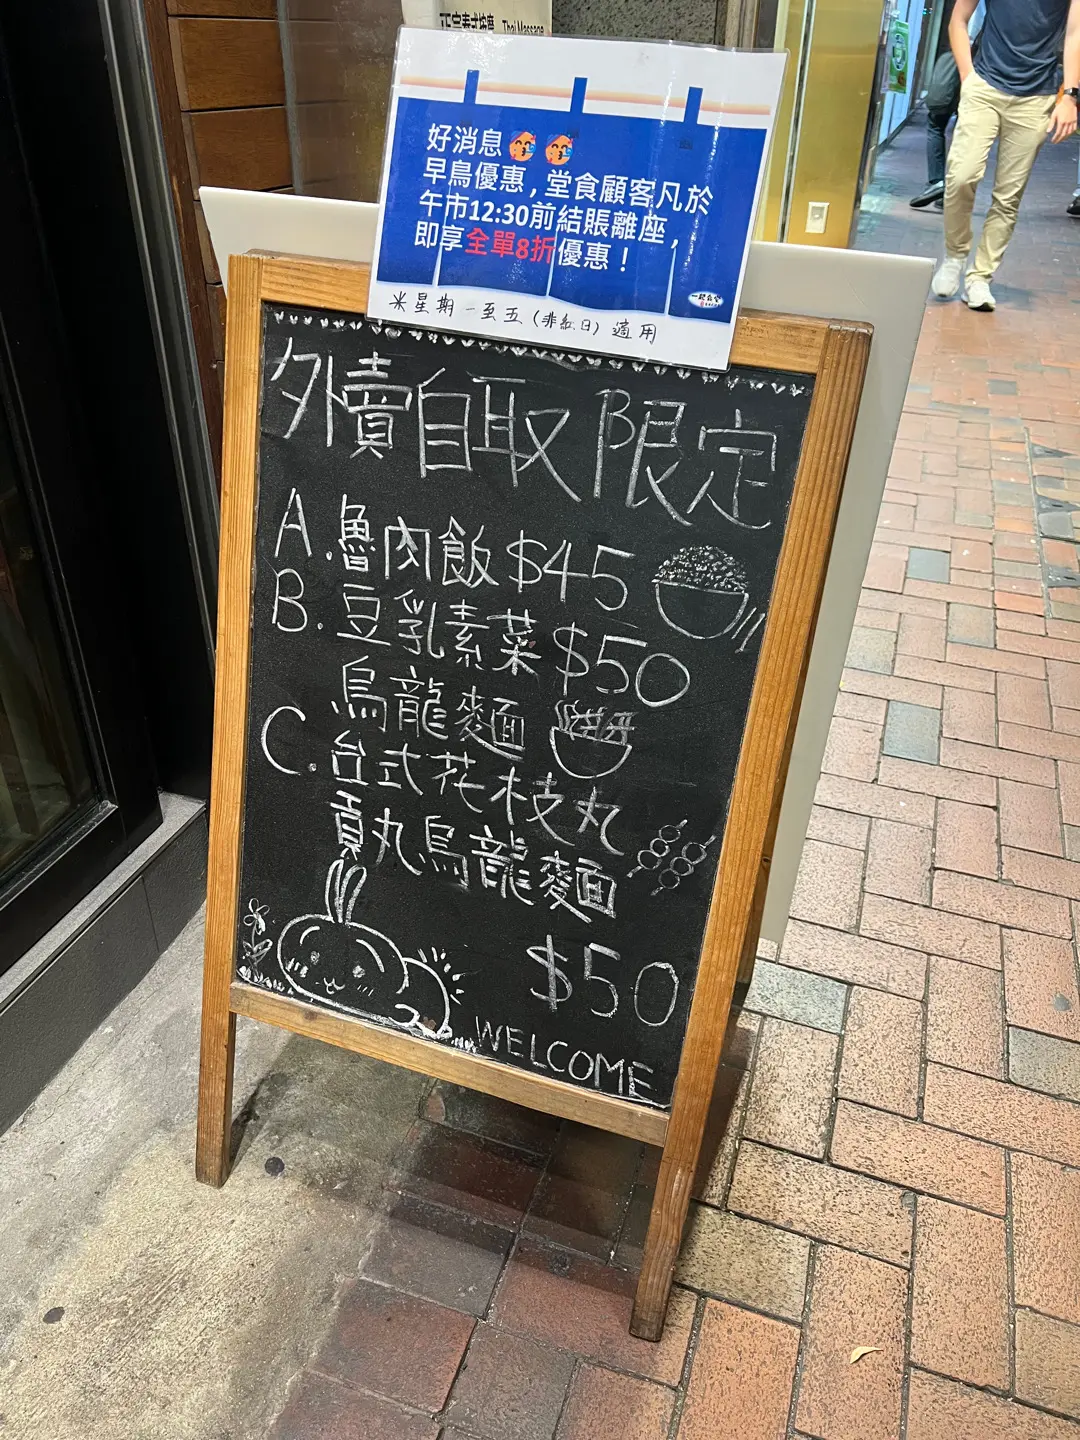 正宗泰式按摩 Thai Massage
好消息🥳🥳
早鳥優惠,堂食顧客凡於
午市12:30前結賬離座,
即享全單8折優惠!
米星期一至五(非紅日)適用
外賣自取限定
A.魯肉飯 $45
B.豆乳素菜 $50
烏龍麵
C.台式花枝丸
貢丸烏龍麵
$50
WELCOME